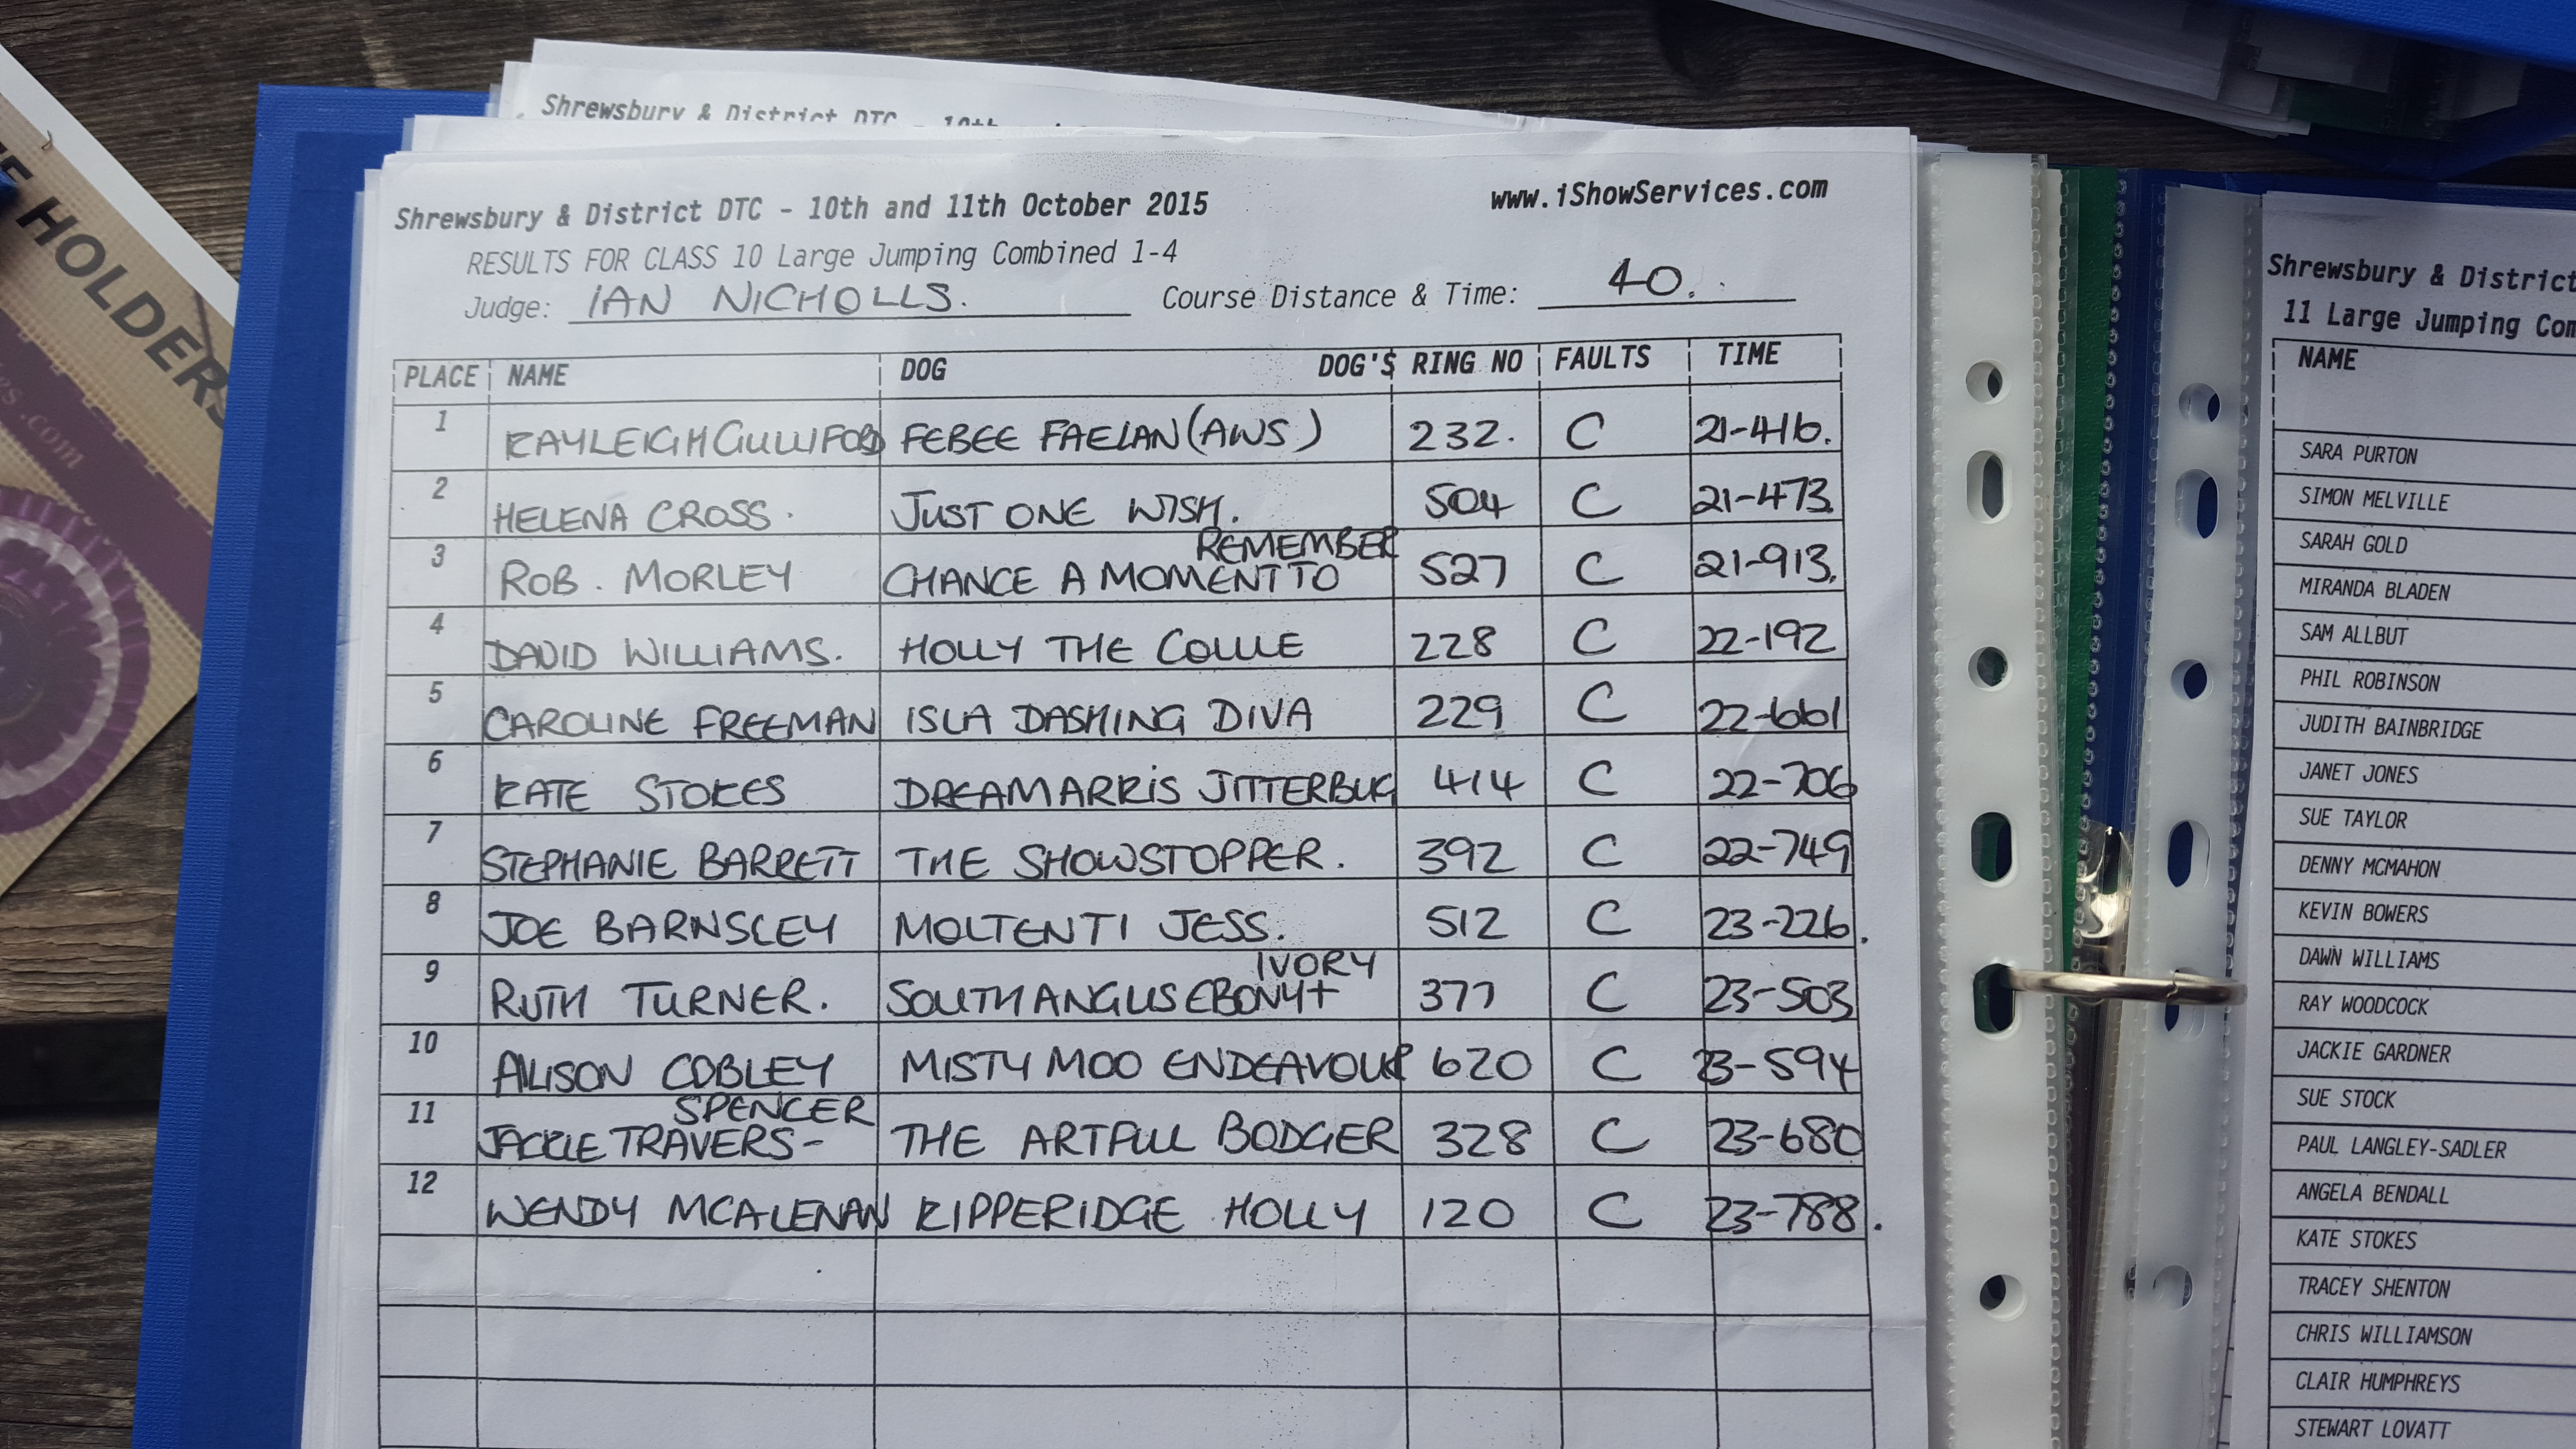 HOLDERS
es.com
Shrewsbury & District DTC - 10th
Shrewsbury & District DTC - 10th and 11th October 2015
www.iShowServices.com
RESULTS FOR CLASS 10 Large Jumping Combined 1-4
Judge: IAN NICHOLLS. Course Distance & Time: 40.
PLACE NAME DOG DOG'S RING NO FAULTS TIME
1 KAYLEIGH GULLIFORD FEBEE FAELAN (AWS) 232. C 21-416.
2 HELENA CROSS. JUST ONE WISH. 504 C 21-473.
3 ROB. MORLEY CHANCE A MOMENT TO REMEMBER 527 C 21-913.
4 DAVID WILLIAMS. HOLLY THE COLLIE 228 C 22-192
5 CAROLINE FREEMAN ISLA DASHING DIVA 229 C 22-661
6 KATE STOKES DREAMARRIS JITTERBUG 414 C 22-706
7 STEPHANIE BARRETT THE SHOWSTOPPER. 392 C 22-749
8 JOE BARNSLEY MOLTENTI JESS. 512 C 23-226.
9 RUTH TURNER. SOUTHANGLIS EBONY + IVORY 377 C 23-503
10 ALISON COBLEY MISTY MOO ENDEAVOUR 620 C 23-594
11 JACKIE TRAVERS-SPENCER THE ARTFUL BODGER 328 C 23-680
12 WENDY MCALENAN KIPPERIDGE HOLLY 120 C 23-788.
Shrewsbury & District
11 Large Jumping Com
NAME
SARA PURTON
SIMON MELVILLE
SARAH GOLD
MIRANDA BLADEN
SAM ALLBUT
PHIL ROBINSON
JUDITH BAINBRIDGE
JANET JONES
SUE TAYLOR
DENNY MCMAHON
KEVIN BOWERS
DAWN WILLIAMS
RAY WOODCOCK
JACKIE GARDNER
SUE STOCK
PAUL LANGLEY-SADLER
ANGELA BENDALL
KATE STOKES
TRACEY SHENTON
CHRIS WILLIAMSON
CLAIR HUMPHREYS
STEWART LOVATT